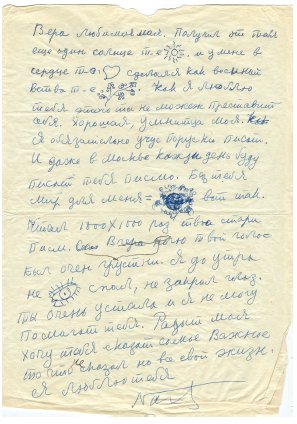 Вера любимая мая. Получил от тебя
еще один солнце т-е и у меня в
сердце т-е сделался как весиний
ветва т-е Как я люблю
тебя этого ты не можеш преставит
себя. Хорошая, умница моя.
Я обязательно учус поруски писат.
И даже в Москве кажды ден буду
писат тебя писмо. Без тебя
мир для меня = вот так.
Читал 1000Х1000 раз твою стари
писм. Вчера ночю твой голос
был очен грустни. Я до утра
не спал, не закрол глаз.
Ты очен устала и я не могу
помагат тебя. Радост мая
хочу тебя сказат самое важное
что не сказал но все свой жизн.
Я люблю тебя